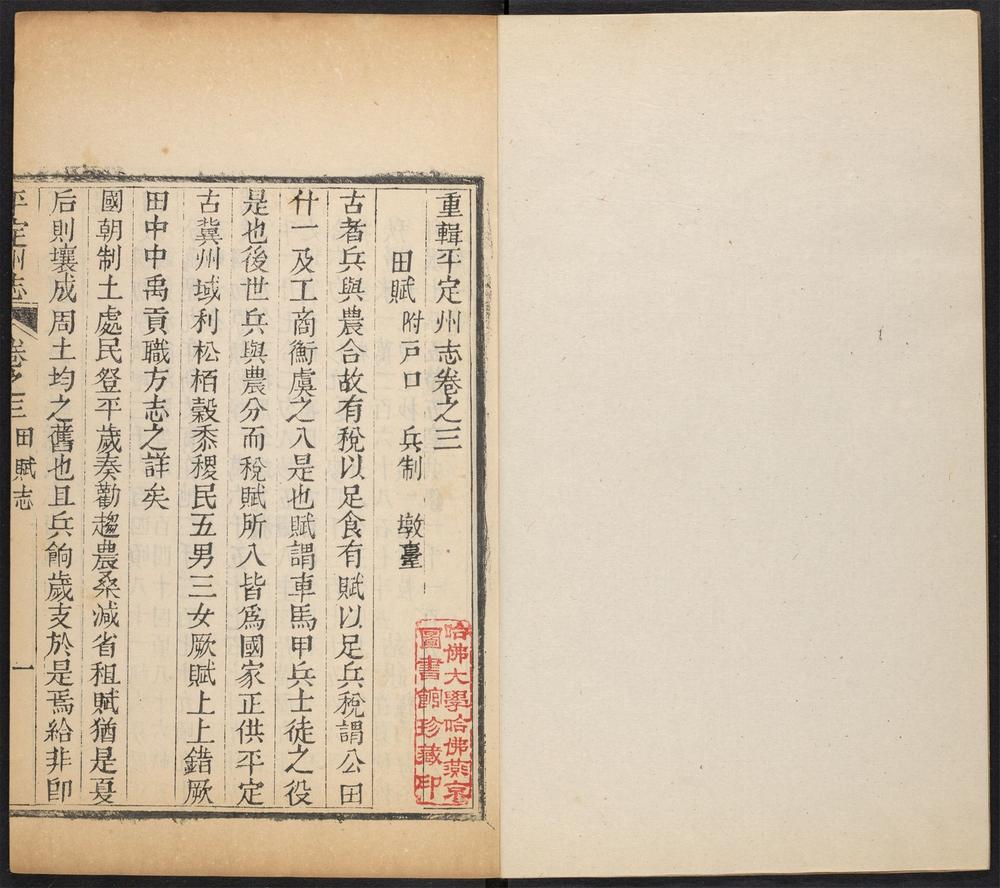 重輯平定州志卷之三
田賦 附 戶口 兵制 墩臺
古者兵與農合故有稅以足食有賦以足兵稅謂公田
什一及工商衡虞之入是也賦謂車馬甲兵士徒之役
是也後世兵與農分而稅賦所入皆爲國家正供平定
古冀州域利松栢穀黍稷民五男三女厥賦上上錯厥
田中中禹貢職方志之詳矣
國朝制土處民登平歲奏勸趨農桑減省租賦猶是夏
后則壤成周土均之舊也且兵餉歲支於是焉給非卽
平定州志 卷之三 田賦志 一
哈佛大學哈佛燕京
圖書館珍藏印